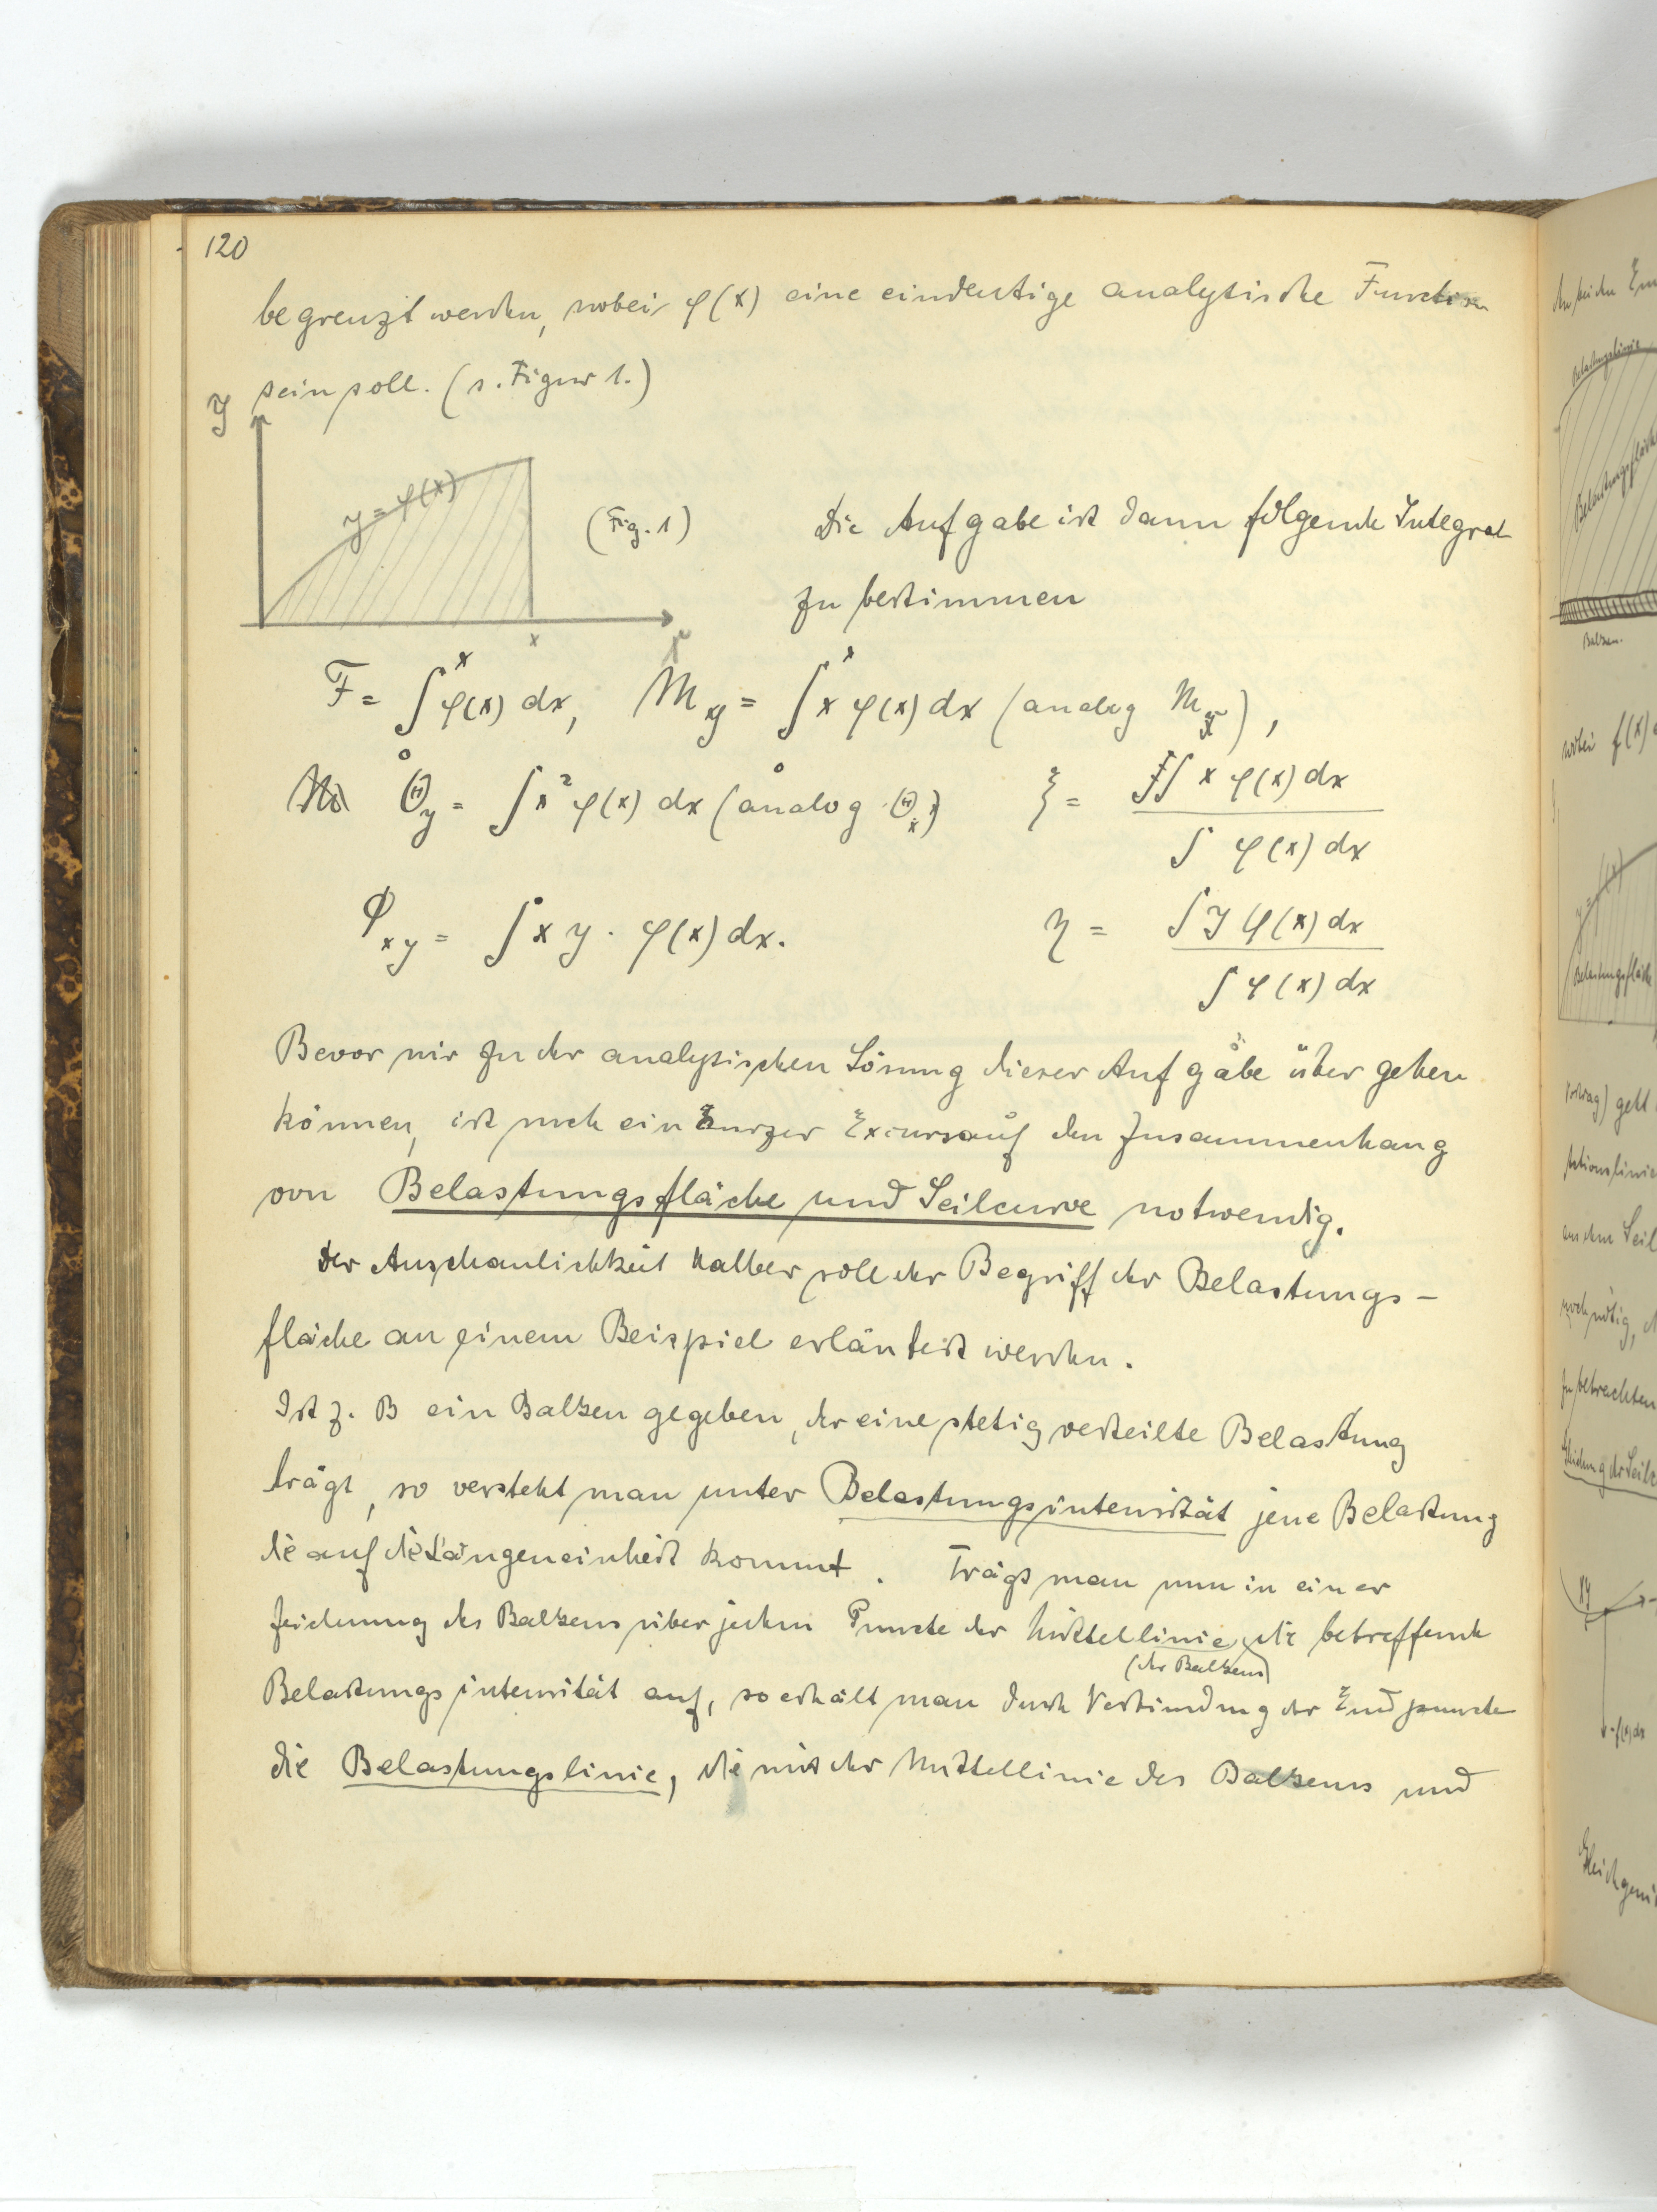 120
begrenzt werden, wobei φ(x) eine eindeutige analytische Function
sein soll. (s. Figur 1.)
y
y = φ(x)
(Fig. 1)
x
x
Die Aufgabe ist dann folgende Integral
zu bestimmen
F = ∫₀ˣ φ(x) dx, M_y = ∫₀ˣ x φ(x) dx (analog M_x),
Θ_y = ∫ x² φ(x) dx (analog Θ_x) ξ = ∫ x φ(x) dx / ∫ φ(x) dx
Φ_xy = ∫ x y · φ(x) dx. η = ∫ y φ(x) dx / ∫ φ(x) dx
Bevor wir zu der analytischen Lösung dieser Aufgabe übergehen
können, ist noch ein kurzer Excurs auf den Zusammenhang
von Belastungsfläche und Seilcurve notwendig.
Der Anschaulichkeit halber soll der Begriff der Belastungs-
fläche an einem Beispiel erläutert werden.
Ist z. B ein Balken gegeben, der eine stetig verteilte Belastung
trägt, so versteht man unter Belastungsintensität jene Belastung
die auf die Längeneinheit kommt. Trägt man nun in einer
Zeichnung des Balkens über jedem Puncte der Mittellinie die betreffende
(des Balkens)
Belastungsintensität auf, so erhält man durch Verbindung der Endpuncte
die Belastungslinie, die mit der Mittellinie des Balkens und
Belastungslinie
Belastungsfläche
Balken.
wobei f(x)
y = f(x)
Belastungsfläche
noch nötig, d
zu betrachten
f(x) dx